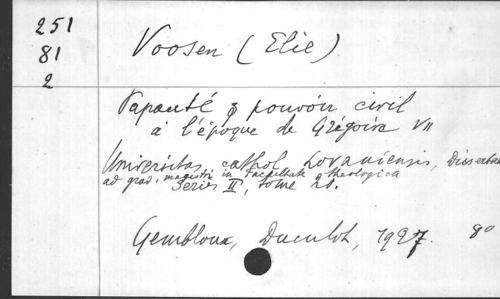 251
81
2
Voosen (Elie)
Papauté & pouvoir civil
à l'époque de Grégoire VII
Universitas cathol Lovaniensis, Dissertat
ad grad. magistri in Facultate theologica
Series II, tome 20.
Gembloux, Duculot, 1927. 8º